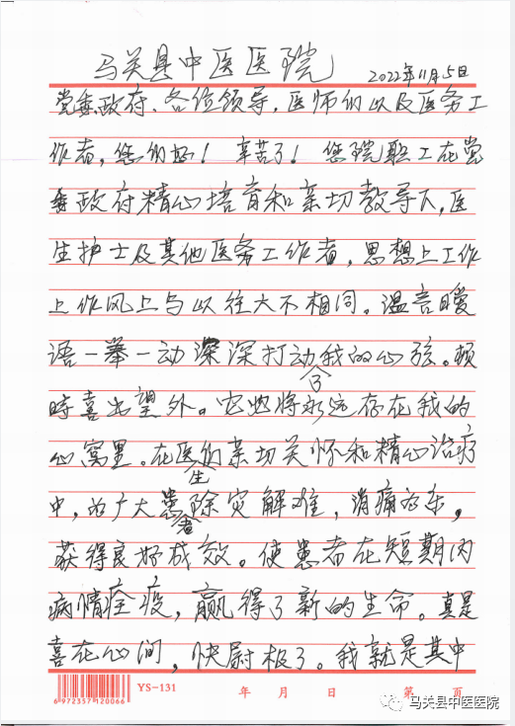 马关县中医医院 2022年11月5日
党委政府、各位领导,医师们以及医务工
作者,您们好!辛苦了!您院职工在党
委政府精心培育和亲切教导下,医
生护士及其他医务工作者,思想上工作
上作风上与以往大不相同。温言暧
语一举一动深深打动了我的心弦。顿
时喜出望外。它她将永远存在我的
心窝里。在医生们亲切关怀和精心治疗
中,为广大患者除灾解难,消痛为乐,
获得良好成效。使患者在短期内
病情痊疫,赢得了新的生命。真是
喜在心间,快尉极了。我就是其中
6972357120066
YS-131
年 月 日
第 页
马关县中医医院